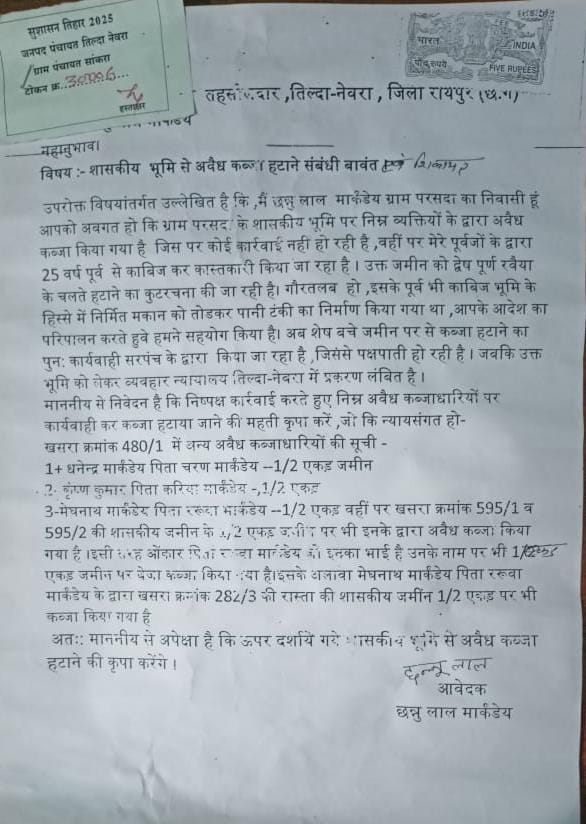 सुशासन तिहार 2025
जनपद पंचायत तिल्दा नेवरा
ग्राम पंचायत सांकरा
टोकन क्र....
हस्ताक्षर
भारत INDIA
पाँच रुपये FIVE RUPEES
तहसीलदार ,तिल्दा-नेवरा , जिला रायपुर (छ.ग)
महानुभाव।
विषय :- शासकीय भूमि से अवैध कब्जा हटाने संबंधी बावंत
उपरोक्त विषयांतर्गत उल्लेखित है कि ,मैं छन्नु लाल मार्कंडेय ग्राम परसदा का निवासी हूं
आपको अवगत हो कि ग्राम परसदा के शासकीय भूमि पर निम्न व्यक्तियों के द्वारा अवैध
कब्जा किया गया है जिस पर कोई कार्रवाई नही हो रही है ,वहीं पर मेरे पूर्वजों के द्वारा
25 वर्ष पूर्व से काबिज कर कास्तकारी किया जा रहा है। उक्त जमीन को द्वेष पूर्ण रवैया
के चलते हटाने का कुटरचना की जा रही है। गौरतलब हो ,इसके पूर्व भी काबिज भूमि के
हिस्से में निर्मित मकान को तोडकर पानी टंकी का निर्माण किया गया था ,आपके आदेश का
परिपालन करते हुवे हमने सहयोग किया है। अब शेष बचे जमीन पर से कब्जा हटाने का
पुनः कार्यवाही सरपंच के द्वारा किया जा रहा है ,जिससे पक्षपाती हो रही है । जबकि उक्त
भूमि को लेकर व्यवहार न्यायालय तिल्दा-नेवरा में प्रकरण लंबित है।
माननीय से निवेदन है कि निष्पक्ष कार्रवाई करते हुए निम्न अवैध कब्जाधारियों पर
कार्यवाही कर कब्जा हटाया जाने की महती कृपा करें ,जो कि न्यायसंगत हो-
खसरा क्रमांक 480/1 में अन्य अवैध कब्जाधारियों की सूची -
1+ धनेन्द्र मार्कंडेय पिता चरण मार्कंडेय --1/2 एकड़ जमीन
2- कृष्ण कुमार पिता करिया मार्कंडेय -,1/2 एकड़
3-मेघनाथ मार्कंडेय पिता रूखा मार्कंडेय --1/2 एकड़ वहीं पर खसरा क्रमांक 595/1 व
595/2 की शासकीय जमीन के 1/2 एकड़ जमीन पर भी इनके द्वारा अवैध कब्जा किया
गया है।इसी तरह ओंकार पिता मार्कंडेय जो इनका भाई है उनके नाम पर भी 1/2
एकड़ जमीन पर बेजा कब्जा किया गया है।इसके अलावा मेघनाथ मार्कंडेय पिता रूखा
मार्कंडेय के द्वारा खसरा क्रमांक 282/3 की रास्ता की शासकीय जमींन 1/2 एकड़ पर भी
कब्जा किया गया है
अतः: माननीय से अपेक्षा है कि ऊपर दर्शाये गये शासकीय भूमि से अवैध कब्जा
हटाने की कृपा करेंगे ।
छन्नू लाल
आवेदक
छन्नु लाल मार्कंडेय